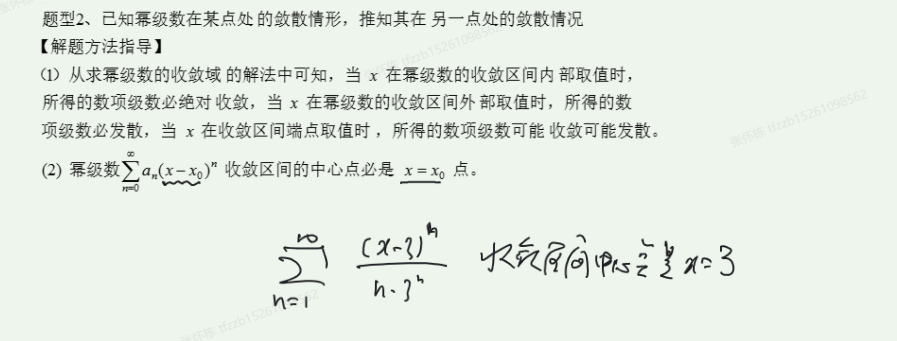 题型2、已知幂级数在某点处的敛散情形，推知其在另一点处的敛散情况
【解题方法指导】
(1) 从求幂级数的收敛域的解法中可知，当 x 在幂级数的收敛区间内部取值时，
所得的数项级数必绝对收敛，当 x 在幂级数的收敛区间外部取值时，所得的数
项级数必发散，当 x 在收敛区间端点取值时，所得的数项级数可能收敛可能发散。
(2) 幂级数∑_{n=0}^{∞} a_n(x-x_0)^n 收敛区间的中心点必是 x=x_0 点。
∑_{n=1}^{∞} (x-3)^n / (n·3^n) 收敛区间中心 是 x=3
张怀栋 tfzzb15261098562